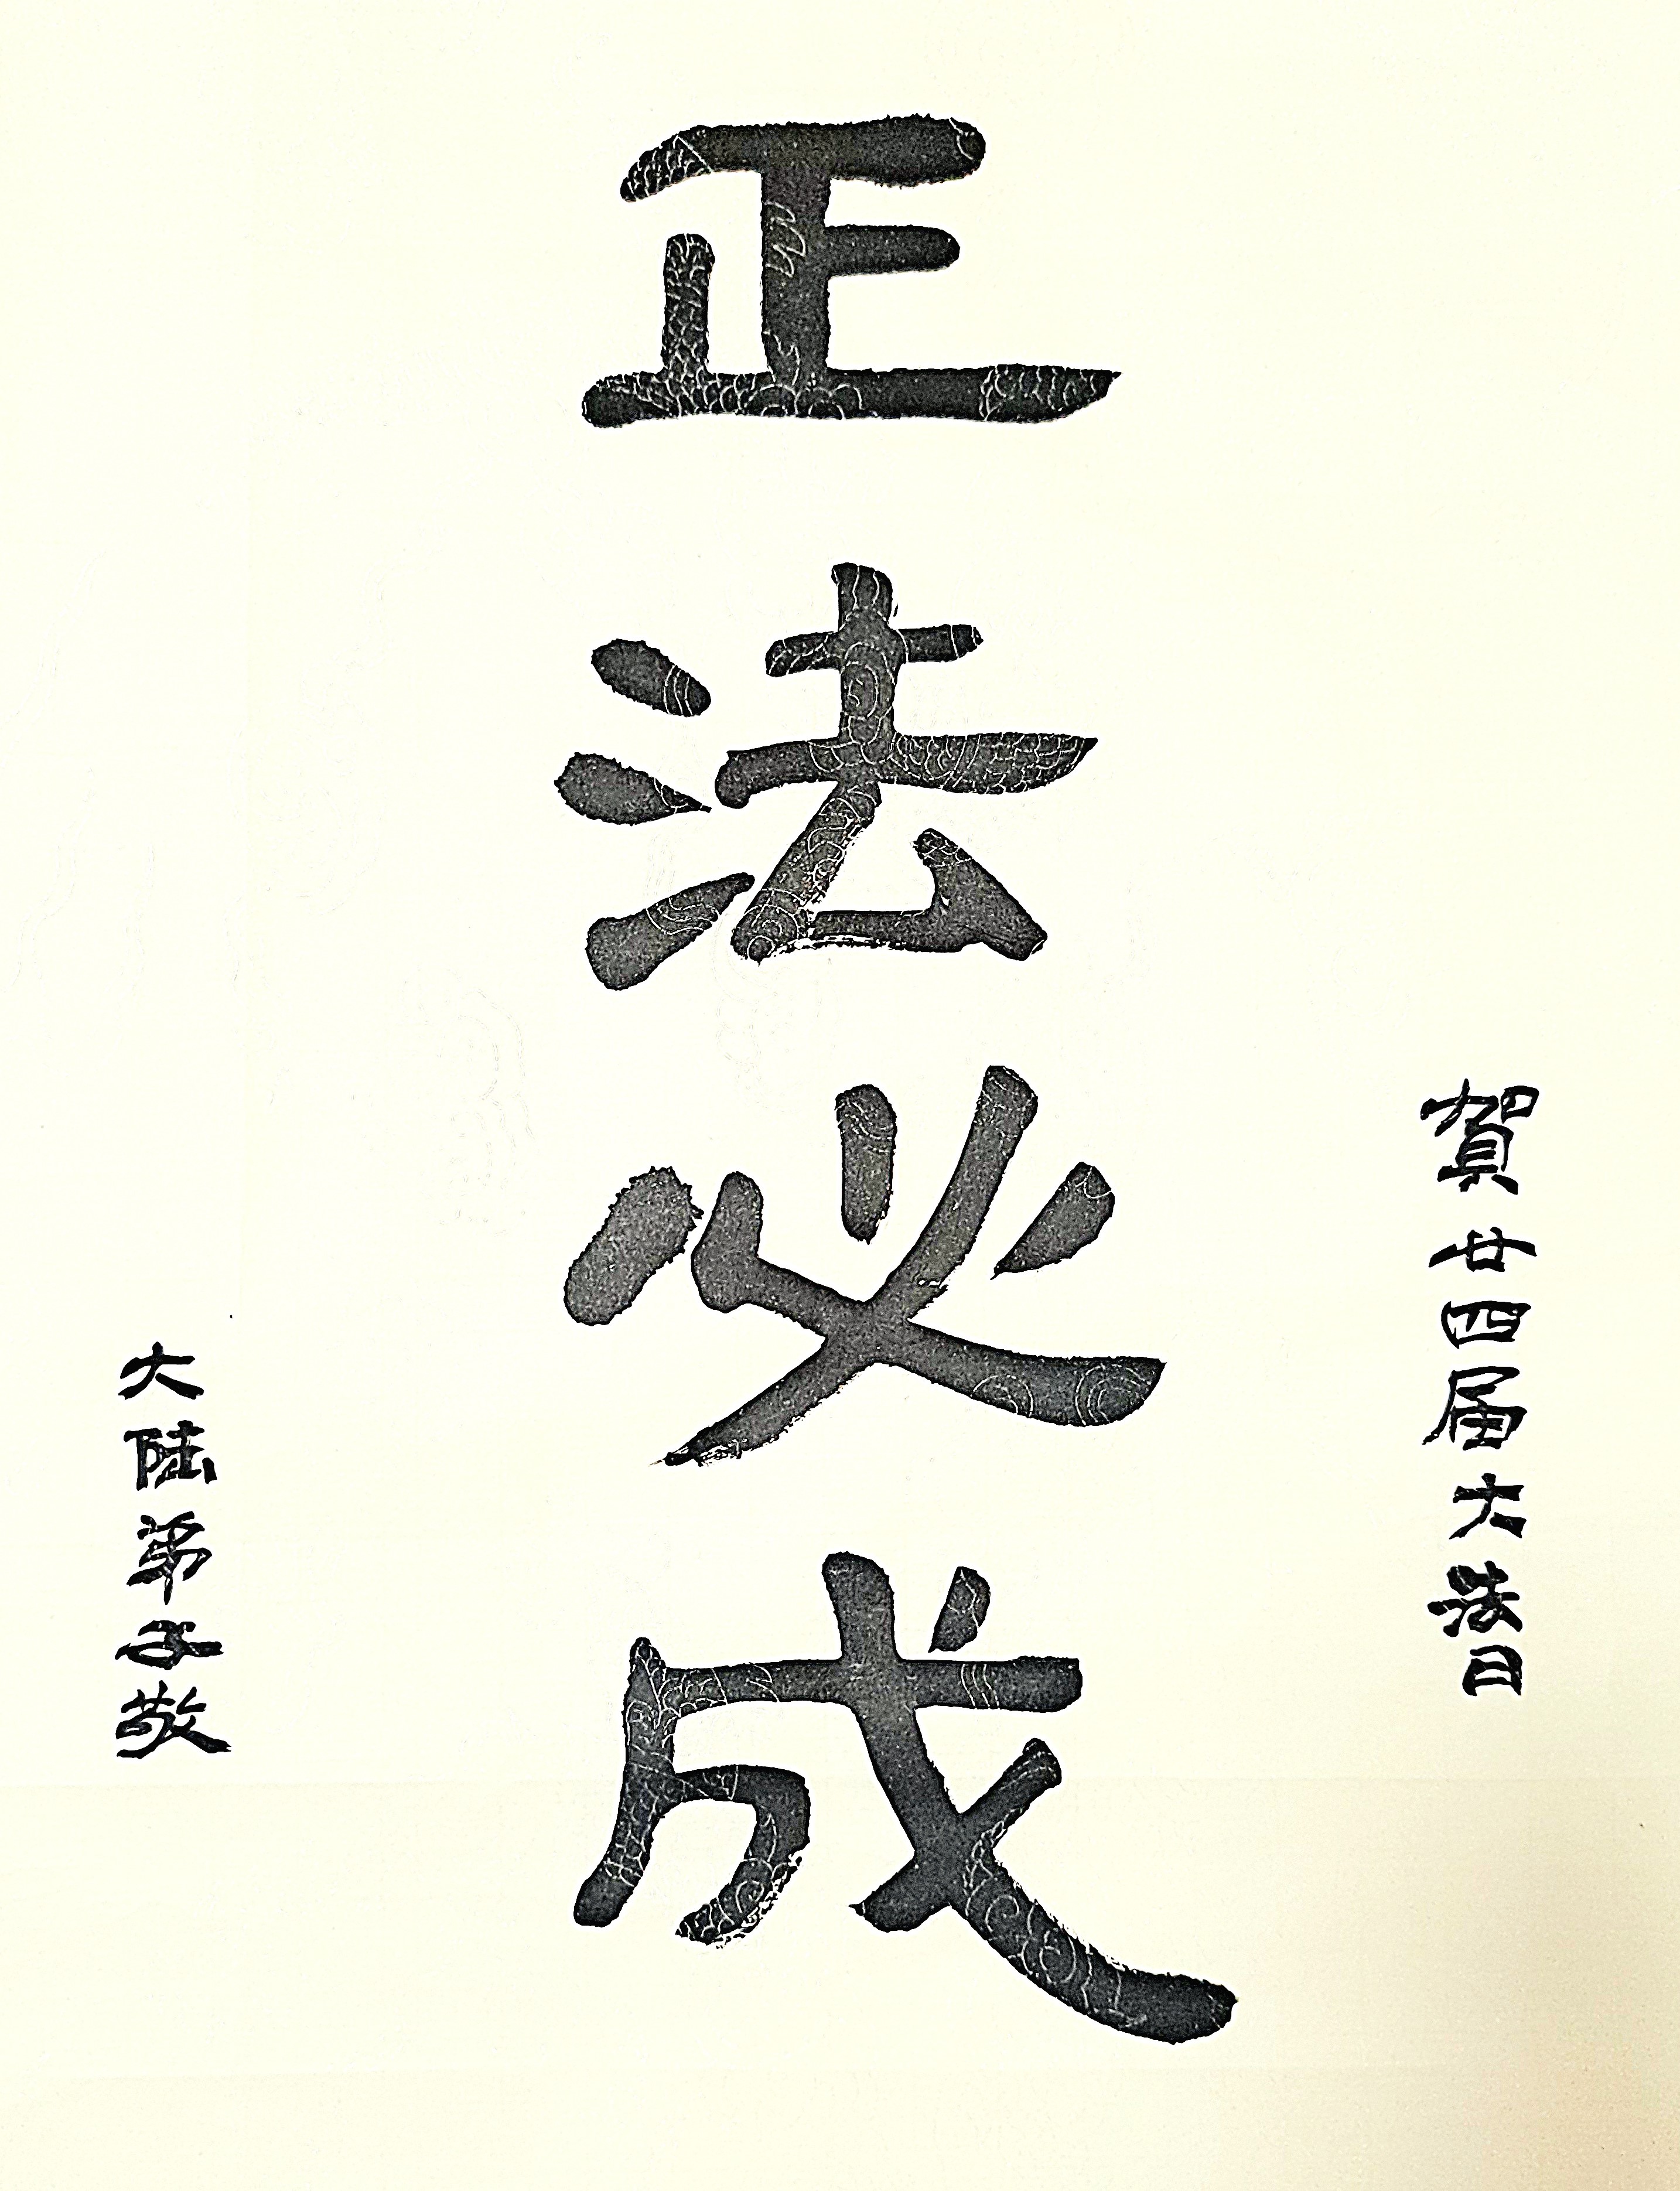 賀廿四届大法日
正法必成
大陸弟子敬